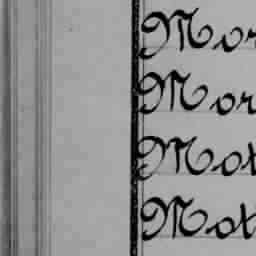 Mor
Mor
Mot
Mot